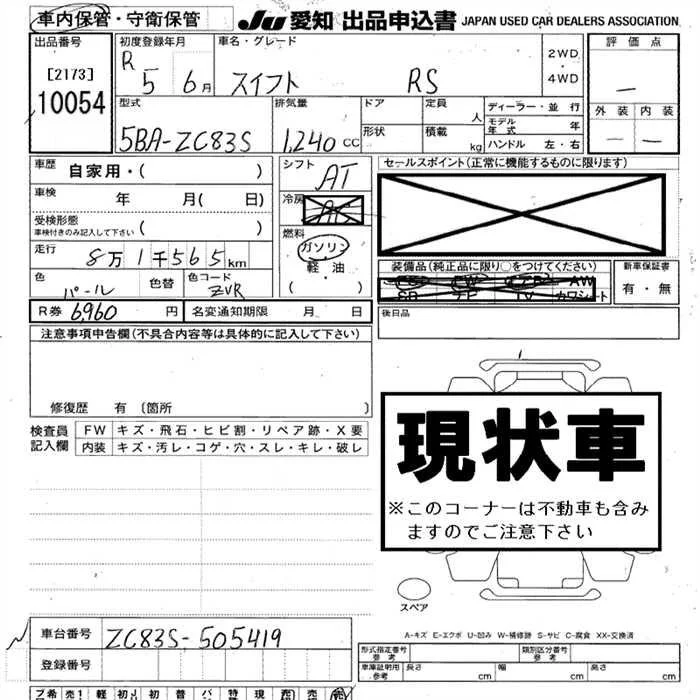 車内保管・守衛保管
JU 愛知 出品申込書 JAPAN USED CAR DEALERS ASSOCIATION
出品番号
[2173]
10054
初度登録年月
R 5 6月
車名・グレード
スイフト RS
2WD
・
4WD
評価点
—
外装 内装
— —
型式
5BA-ZC83S
排気量
1,240 CC
ドア
定員
人
形状
積載
kg
ディーラー・並行
モデル年式 年
ハンドル 左・右
車歴 自家用・( )
車検 年 月( 日)
受検形態
車検付きのみ記入して下さい ( )
走行 8万1千565km
色 パール 色替 色コード ZVR
シフト AT
冷房 AC
燃料
ガソリン
軽油
( )
セールスポイント(正常に機能するものに限ります)
装備品(純正品に限り○をつけてください)
AW
SR TV カワシート
新車保証書
有・無
後日品
R券 6,960 円 名変通知期限 月 日
注意事項申告欄(不具合内容等は具体的に記入して下さい)
修復歴 有 〔箇所 〕
検査員記入欄
FW キズ・飛石・ヒビ割・リペア跡・X要
内装 キズ・汚レ・コゲ・穴・スレ・キレ・破レ
1
現状車
※このコーナーは不動車も含み
ますのでご注意下さい
スペア
A-キズ E-エクボ U-凹み W-補修跡 S-サビ C-腐食 XX-交換済
車台番号 ZC83S-505419
登録番号
型式指定番号 参考
類別区分番号 参考
車庫証明用 参考 長さ cm 幅 cm 高さ cm